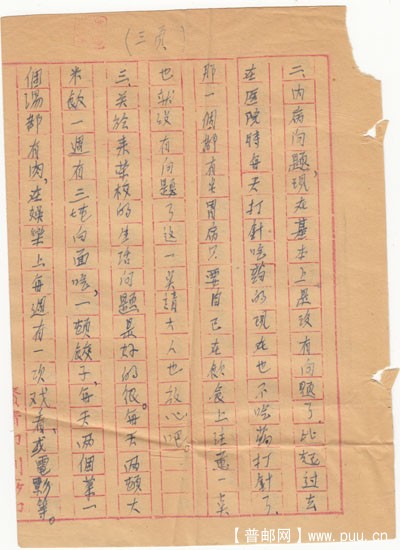 (三页)
二、内病问题,现在基本上是没有问题了,比起过去
在医院时每天打針吃药的现在也不吃药打針了。
那一個都有生胃病只要自己在飲食上注意一点
也就没有问题了这一点請大人也放心吧。
三、关於来某校的生活问題是好的很。每天两頓大
米飯一週有三吨白面吃,一頓餃子,每天两個菜一
個湯都有肉,在娯樂上每週有一次戏看,或電影等。
【普邮网】www.puu.cn